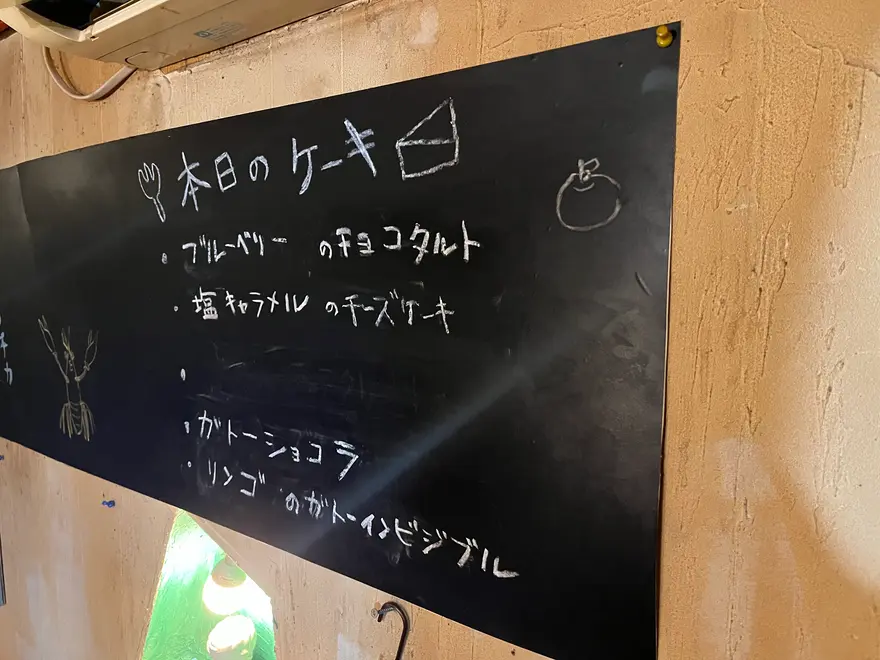 本日のケーキ
・ブルーベリーのチョコタルト
・塩キャラメルのチーズケーキ
・
・ガトーショコラ
・リンゴのガトーインビジブル